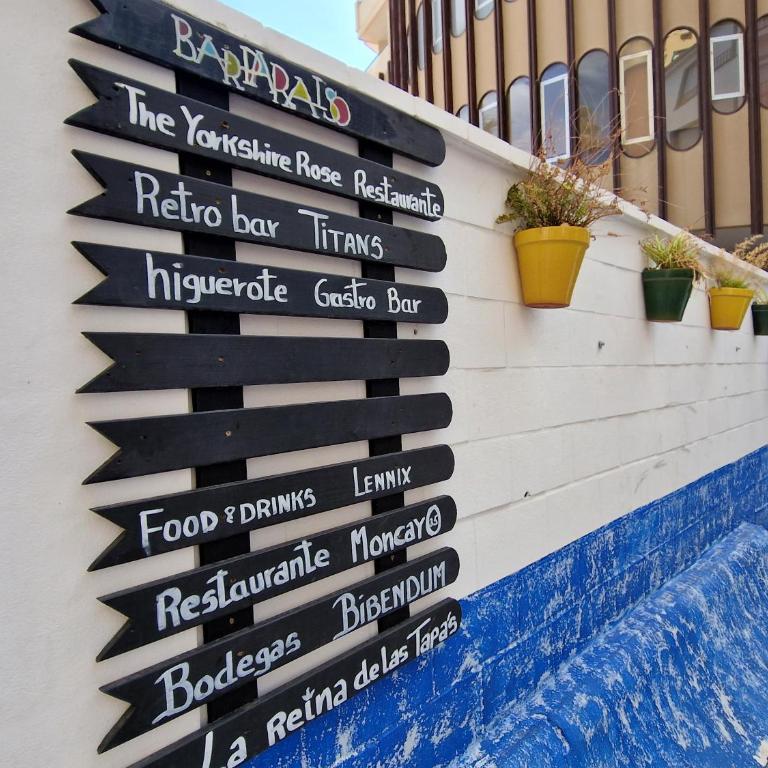 BARPARAISO
The Yorkshire Rose Restaurante
Retro bar TITANS
higuerote Gastro Bar
FOOD & DRINKS LENNIX
Restaurante Moncayo
Bodegas BIBENDUM
La Reina de las Tapas